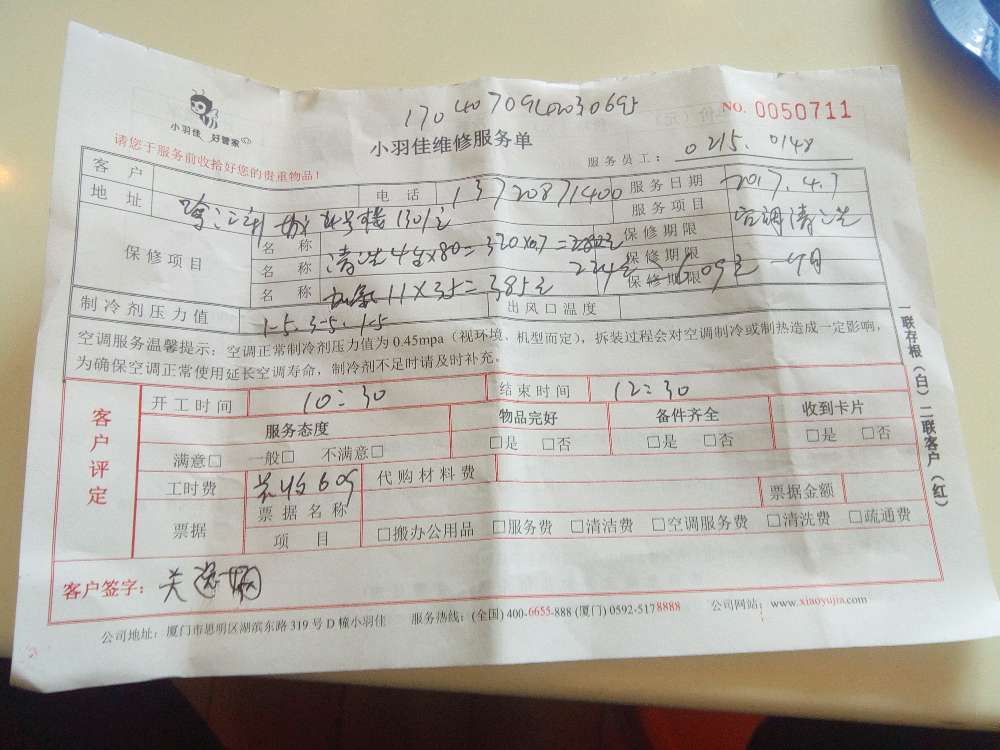 小羽佳 好管家
17040709402030695
NO. 0050711
请您于服务前收拾好您的贵重物品！
小羽佳维修服务单
服务员工： 0215. 0148
客户 电话 13720871400 服务日期 2017.4.7
地址 1301室 服务项目 空调清洗
保修项目
名称 清洗 4台×80=320×0.7= 保修期限
名称 224元 保修期限
名称 加氟 11×35=385元 保修期限 609元 一个月
制冷剂压力值 1-5. 3-5. 1-5 出风口温度
空调服务温馨提示：空调正常制冷剂压力值为 0.45mpa（视环境、机型而定），拆装过程会对空调制冷或制热造成一定影响，
为确保空调正常使用延长空调寿命，制冷剂不足时请及时补充。
客户评定
开工时间 10：30 结束时间 12：30
服务态度 物品完好 备件齐全 收到卡片
满意□ 一般□ 不满意□ □是 □否 □是 □否 □是 □否
工时费 共收609 代购材料费
票据 票据名称 票据金额
项目 □搬办公用品 □服务费 □清洁费 □空调服务费 □清洗费 □疏通费
客户签字：
公司地址：厦门市思明区湖滨东路 319 号 D 幢小羽佳 服务热线：(全国) 400-6655-888 (厦门) 0592-5178888 公司网站：www.xiaoyujia.com
一联存根（白）二联客户（红）